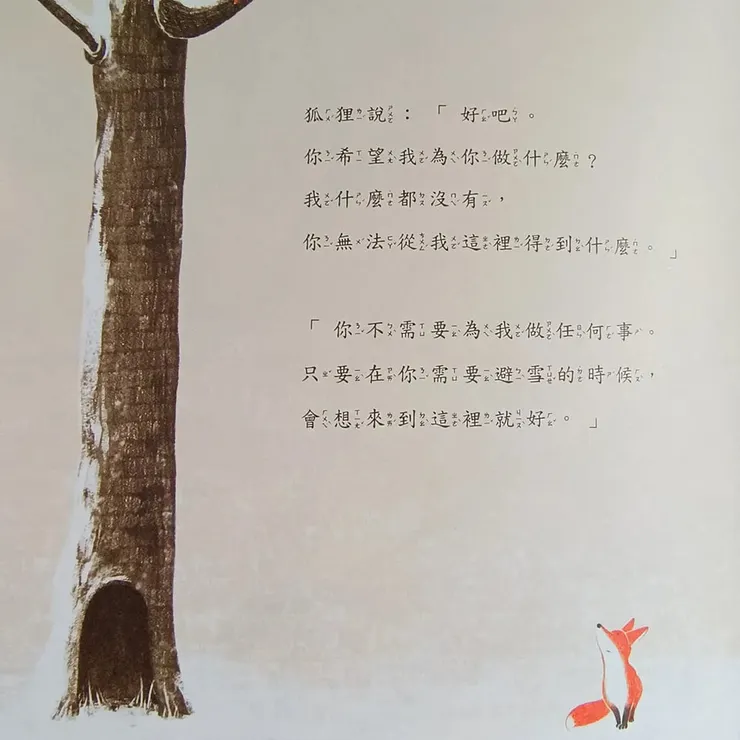 狐狸說：「好吧。
你希望我為你做什麼？
我什麼都沒有，
你無法從我這裡得到什麼。」
「你不需要為我做任何事。
只要在你需要避雪的時候，
會想來到這裡就好。」